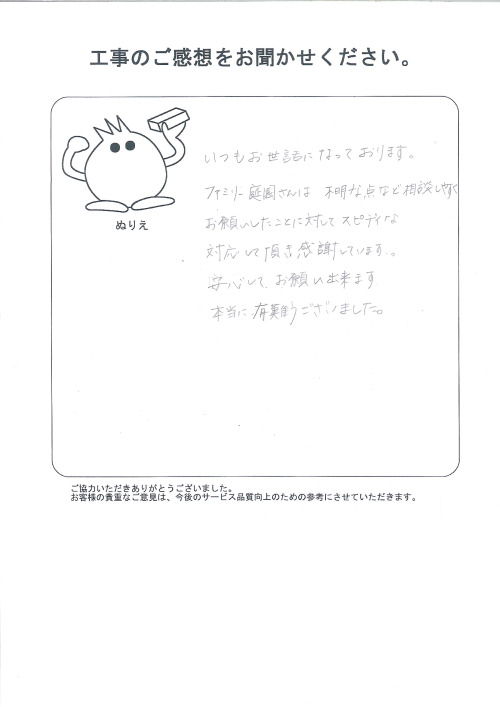 工事のご感想をお聞かせください。
ぬりえ
いつもお世話になっております。
ファミリー庭園さんは 不明な点など相談しやすく
お願いしたことに対して スピディな
対応して頂き感謝しています。
安心して、お願い出来ます
本当に有難うございました。
ご協力いただきありがとうございました。
お客様の貴重なご意見は、今後のサービス品質向上のための参考にさせていただきます。